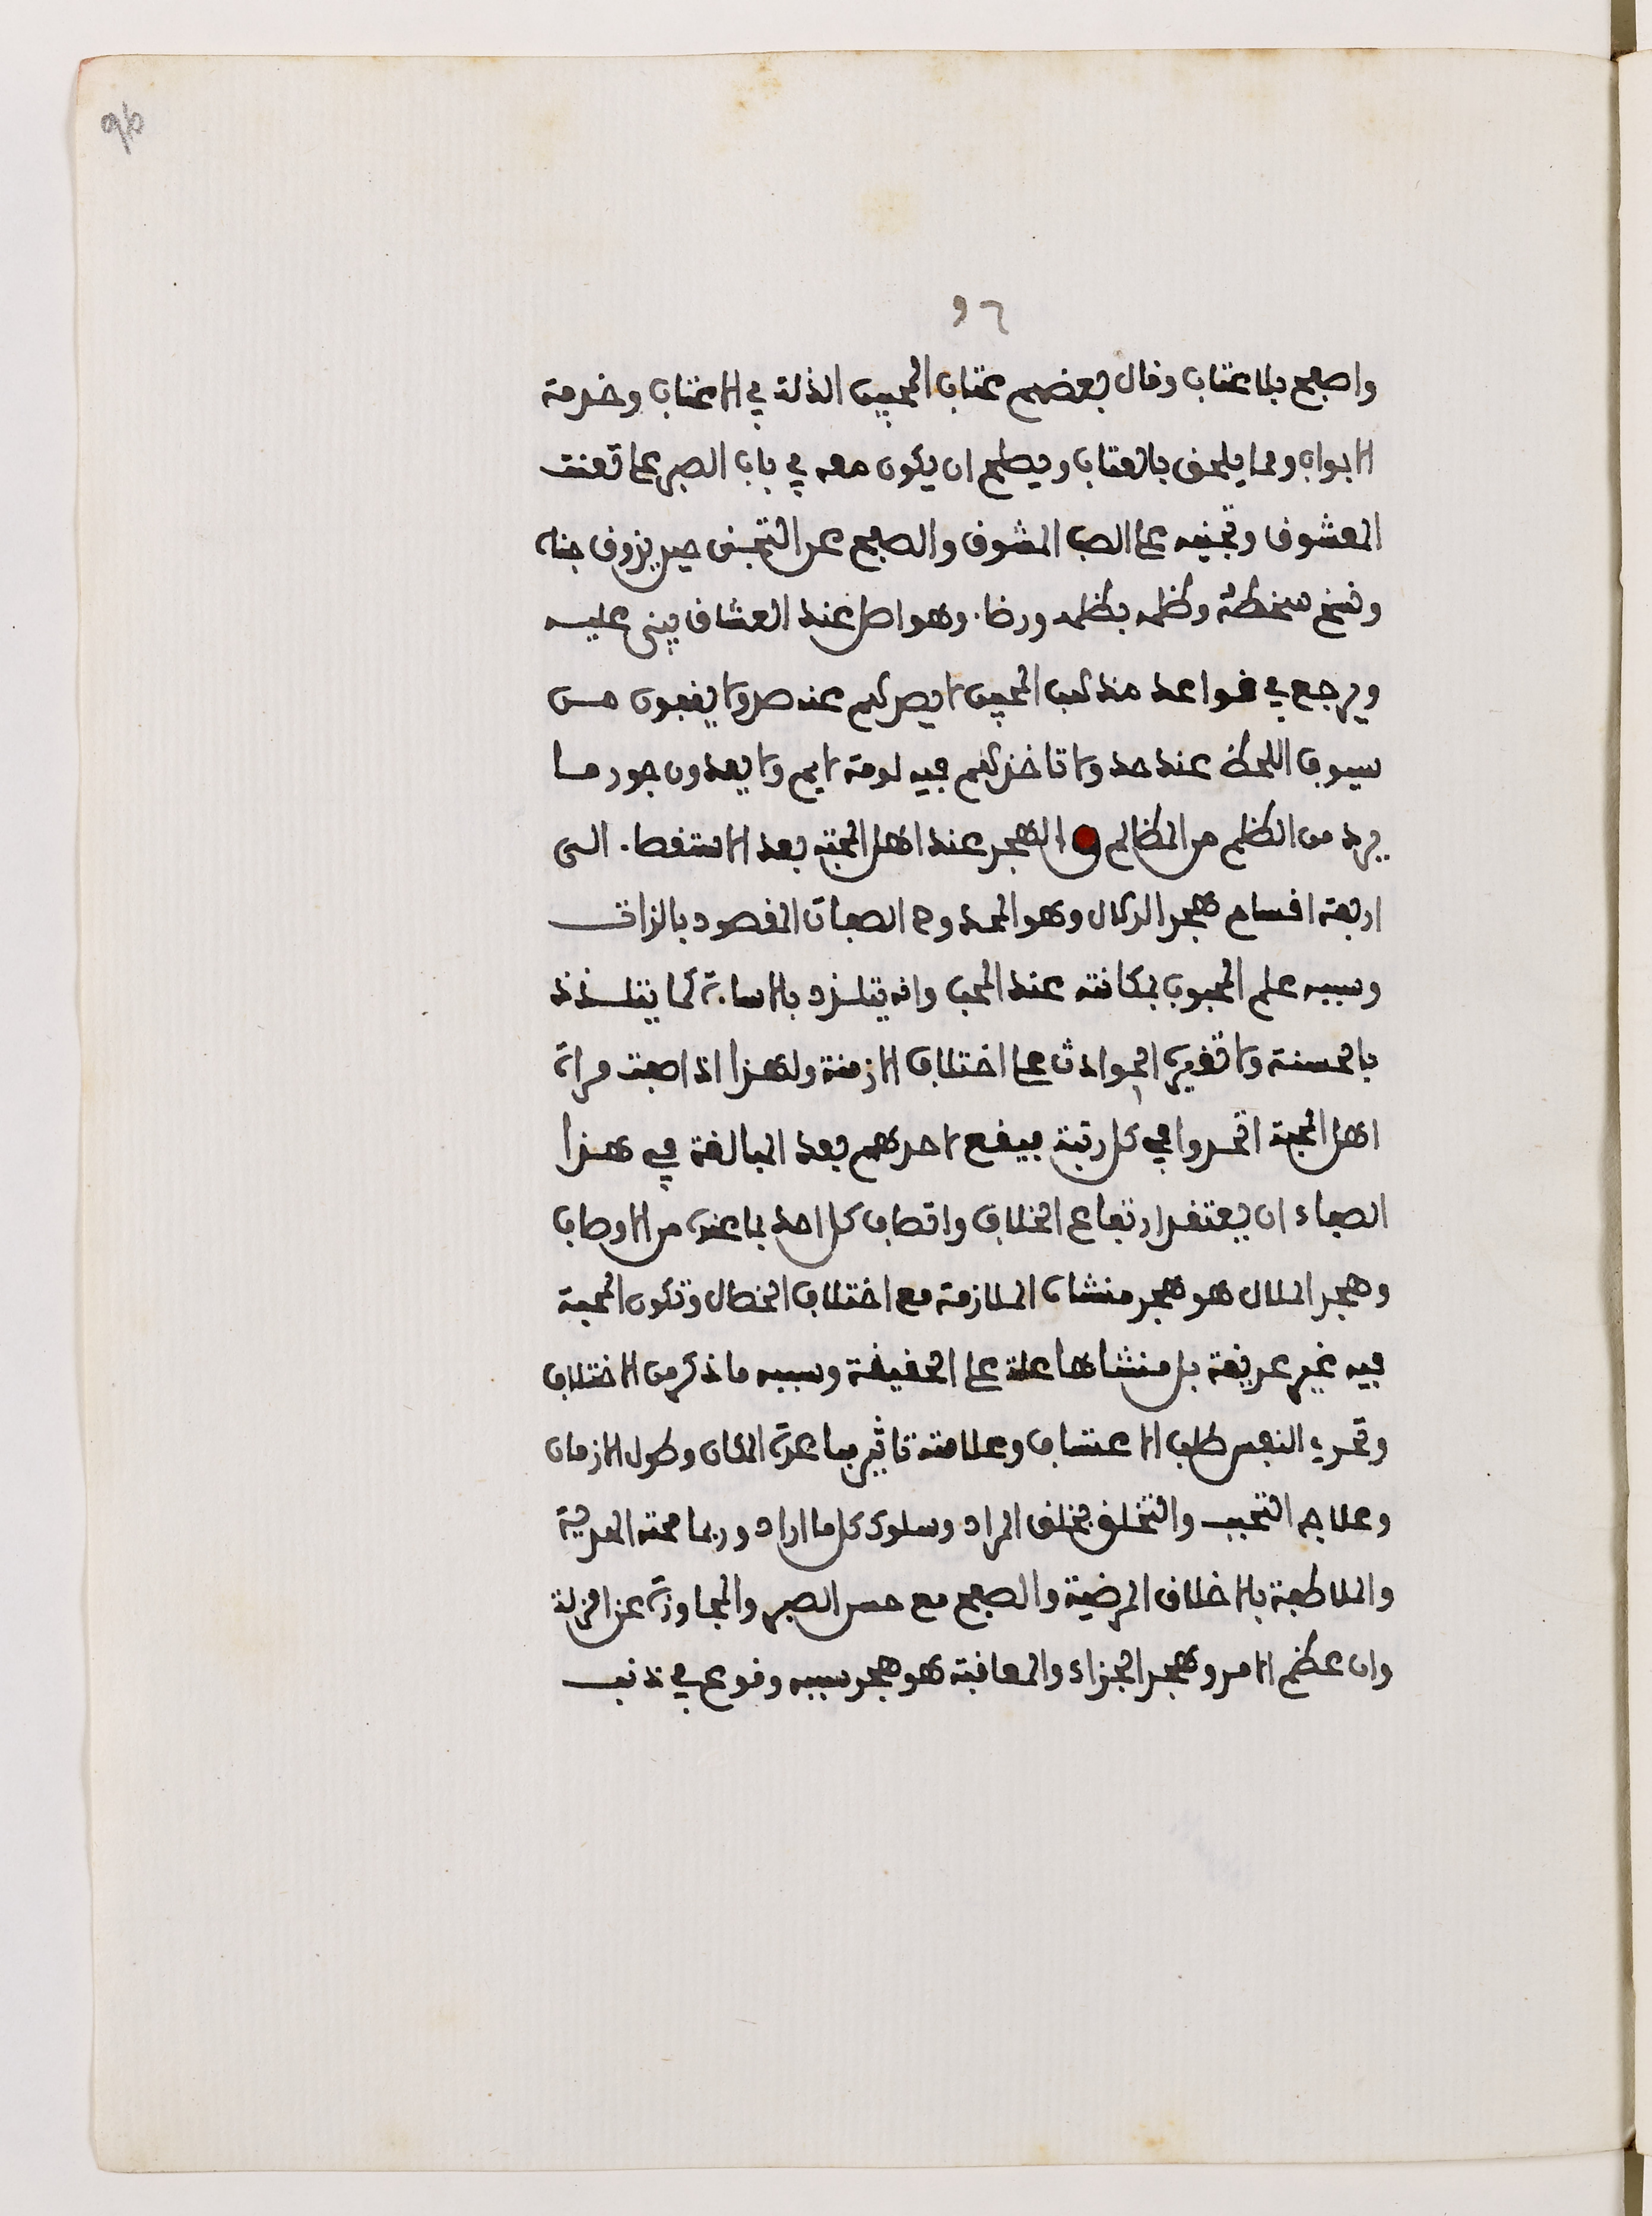 96
٩٦
واصفح بلا عتاب وقال بعضهم عتاب المحبين الذلة في الاعتاب وخدمة
الابواب ومما يلحق بالعتاب ويصلح ان يكون معه في باب الصبر على تعنت
المعشوق وتجنيه على الصب المشوق والصفح عن التجني حين يزوق جناه
ونسخ سخطه وظلمه بظلمه ورضاه وهو اصل عند العشاق يبنى عليه
ويرجع في قواعد مذهب المحبين لا يصدهم عنه صد ولا يقفون من
سيوف اللحظ عند حد ولا تاخذهم فيه لومة لايم ولا يعدون جور ما
يرد من الظلم من المظالم الهجر عند اهل المحبة بعد الاستقصاء الى
اربعة اقسام هجر الدلال وهو الممدوح الصفات المقصود بالذات
وسببه علم المحبوب بمكانته عند المحب وانه يتلذذ بالاساءة كما يتلذذ
بالحسنة ولا تغيره الحوادث على اختلاف الازمنة ولهذا اذا صفت مراة
اهل المحبة اتحدوا في كل رتبة فيقع لاحدهم بعد المبالغة في هذا
الصفاء ان يعتقد ارتفاع الخلاف واتصاف كل احد بما عنده من الاوصاف
وهجر الملال هو هجر منشاه الملازمة مع اختلاف الخصال وتكون المحبة
فيه غير عريقة بل منشاها علة على الحقيقة وسببه ما ذكر من الاختلاف
وتحري النفس طلب الاعتساف وعلامته تاثير مباعدة المكان وطول الازمان
وعلاجه التحبب والتخلق بخلق المراد وسلوك كل ما اراد وربما محته الهدية
والملاطفة بالاخلاق المرضية والصفح مع حسن الصبر والمجاوزة عن الزلة
وان عظم الامر وهجر الجزاء والمعاقبة هو هجر سببه وقوع في ذنب